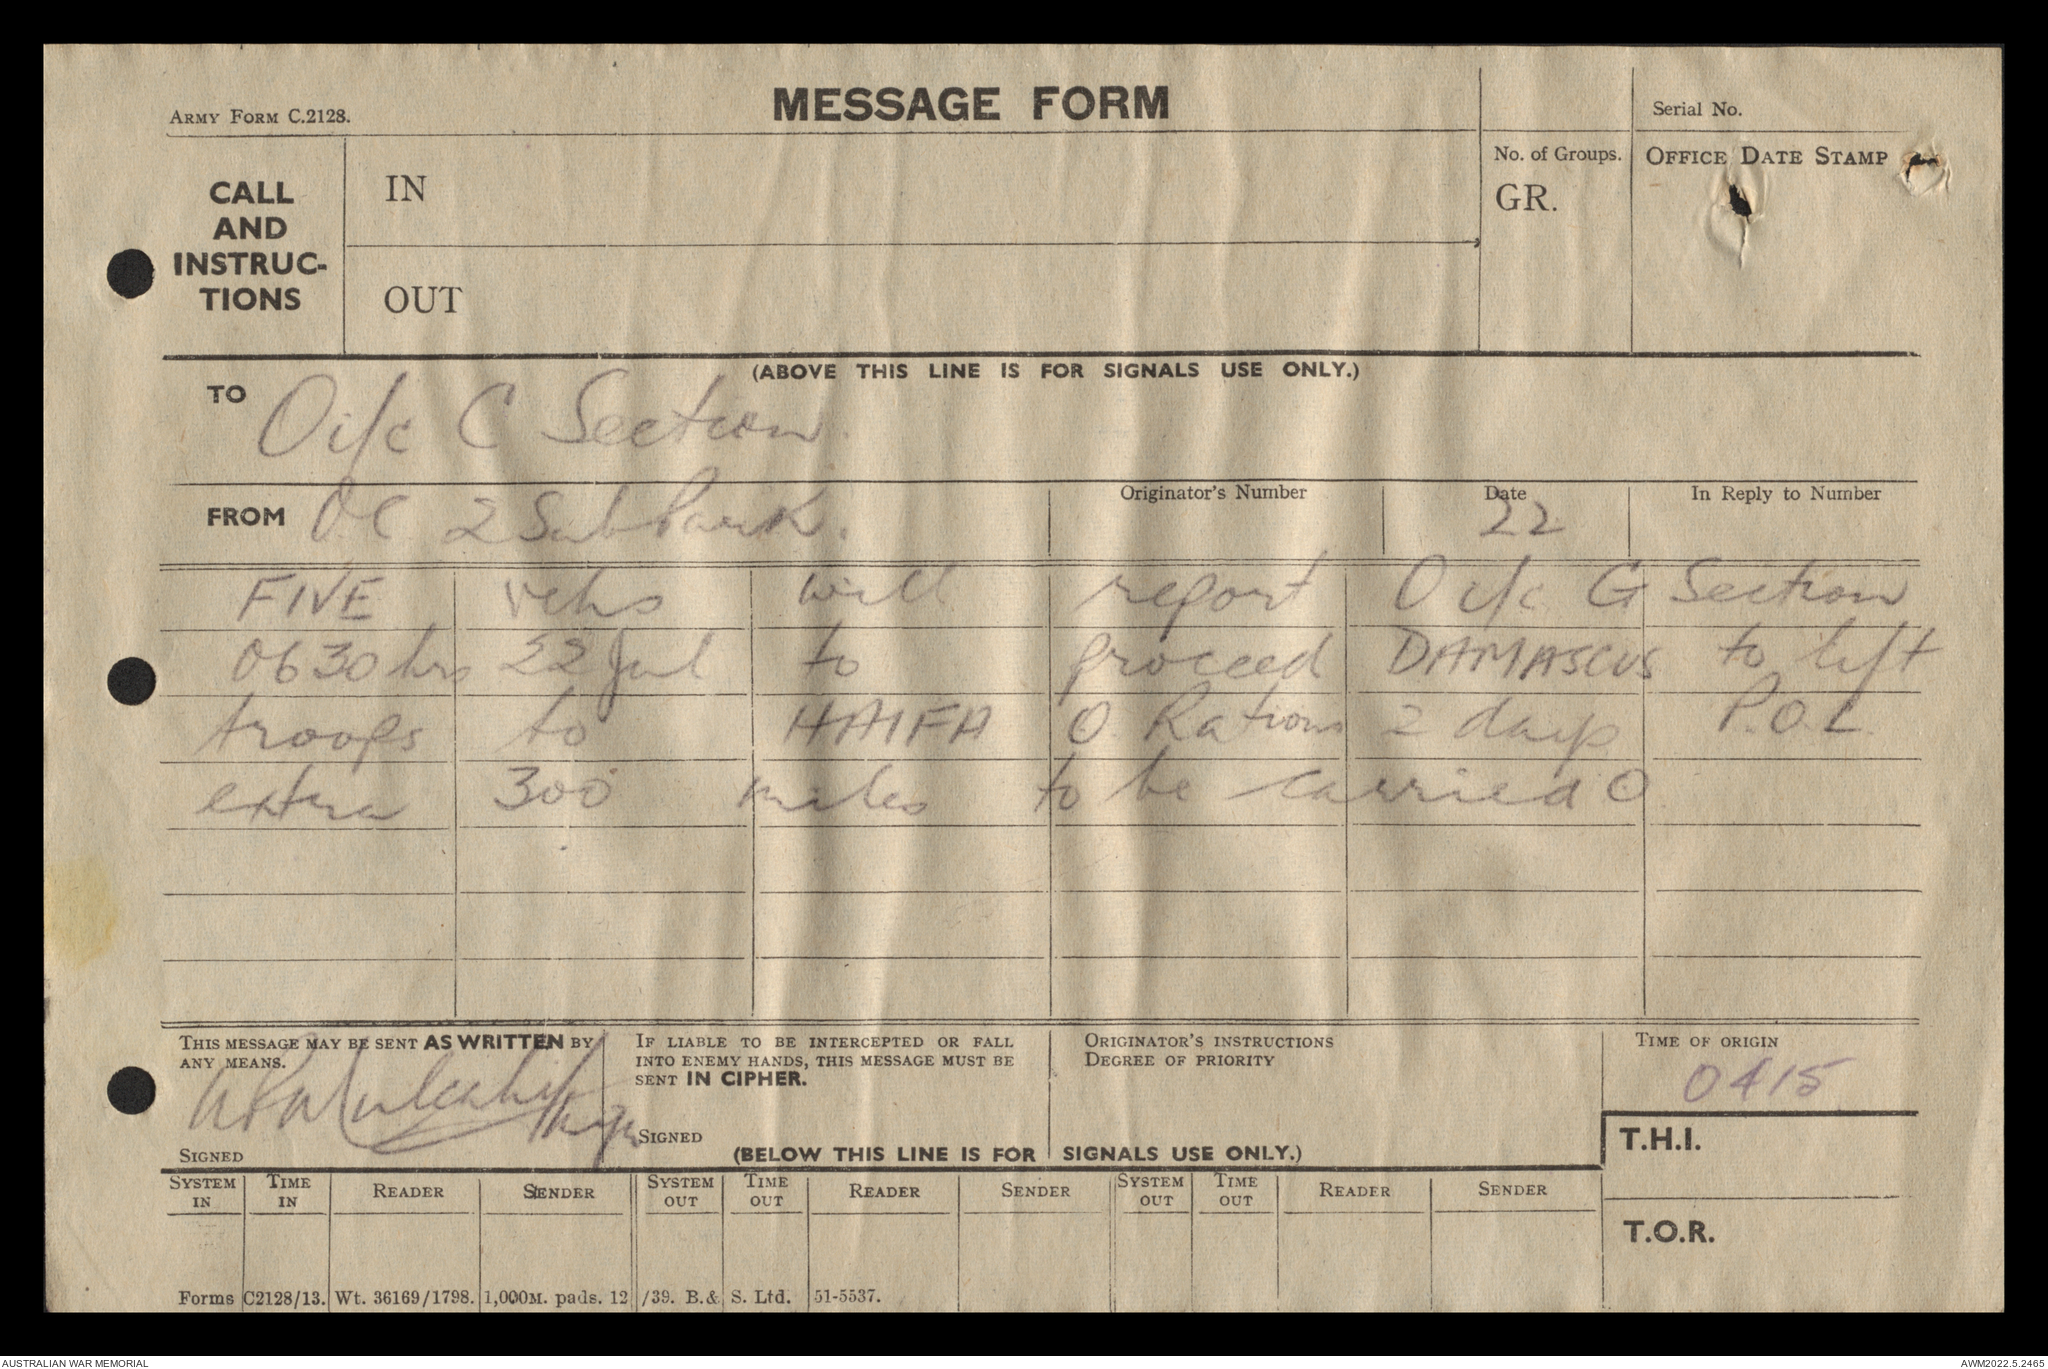 ARMY FORM C.2128.
MESSAGE FORM
Serial No.
CALL AND INSTRUC-TIONS
IN
OUT
No. of Groups.
GR.
OFFICE DATE STAMP
(ABOVE THIS LINE IS FOR SIGNALS USE ONLY.)
TO Oi/c C Section.
FROM O.C. 2 Sub Park.
Originator's Number
Date
22
In Reply to Number
FIVE vehs will report O i/c G Section
0630 hrs 22 Jul to proceed DAMASCUS to lift
troops to HAIFA O Rations 2 days P.O.L.
extra 300 miles to be carried O
THIS MESSAGE MAY BE SENT AS WRITTEN BY
ANY MEANS.
SIGNED
IF LIABLE TO BE INTERCEPTED OR FALL
INTO ENEMY HANDS, THIS MESSAGE MUST BE
SENT IN CIPHER.
SIGNED
ORIGINATOR'S INSTRUCTIONS
DEGREE OF PRIORITY
TIME OF ORIGIN
0415
(BELOW THIS LINE IS FOR SIGNALS USE ONLY.)
T.H.I.
T.O.R.
SYSTEM IN TIME IN READER SENDER SYSTEM OUT TIME OUT READER SENDER SYSTEM OUT TIME OUT READER SENDER
Forms C2128/13. Wt. 36169/1798. 1,000M. pads. 12/39. B.& S. Ltd. 51-5537.
AUSTRALIAN WAR MEMORIAL
AWM2022.5.2465